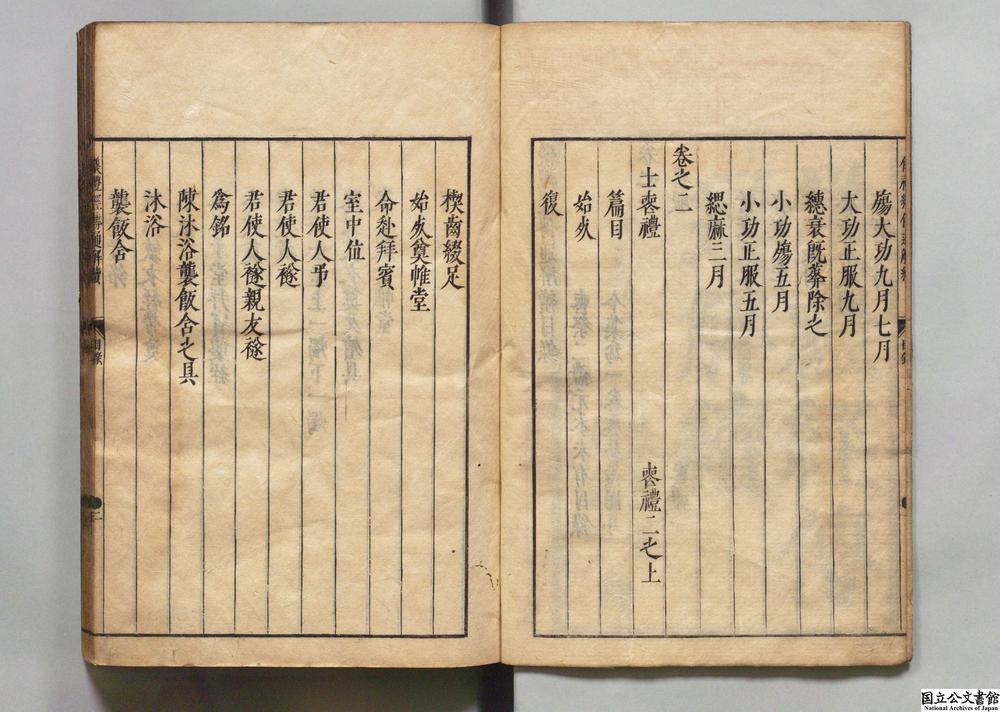 殤大功九月七月
大功正服九月
繐衰旣葬除之
小功殤五月
小功正服五月
緦麻三月
卷之二
士喪禮 喪禮二之上
篇目
始死
復
楔齒綴足
始死奠帷堂
命赴拜賓
室中位
君使人弔
君使人襚
君使人襚親友襚
爲銘
陳沐浴襲飯含之具
沐浴
襲飯含
儀禮經傳通解續 目錄 二
国立公文書館
National Archives of Japan